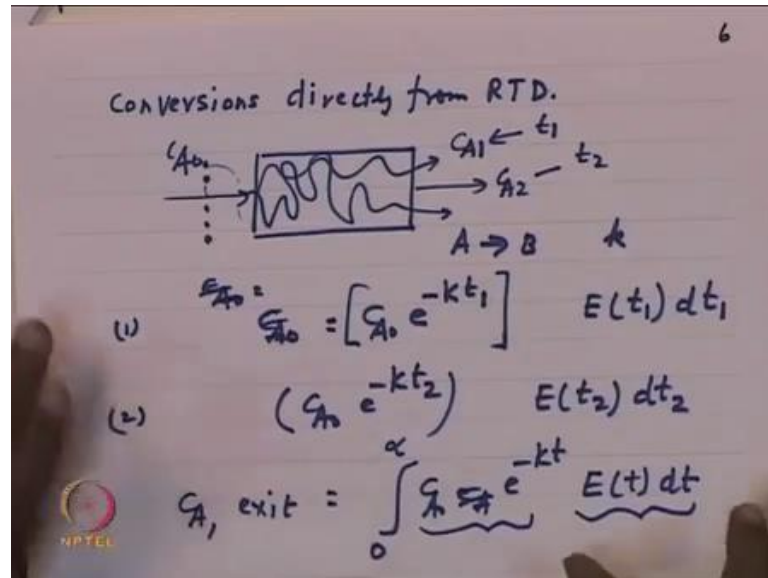 6
Conversions directly from RTD.
C_A0 C_A1 ← t_1
C_A2 — t_2
A → B k
C_A0 =
(1) C_A0 = [C_A0 e^{-kt_1}] E(t_1) dt_1
(2) (C_A0 e^{-kt_2}) E(t_2) dt_2
C_A, exit = ∫_0^α C_A e^{-kt} E(t) dt
NPTEL